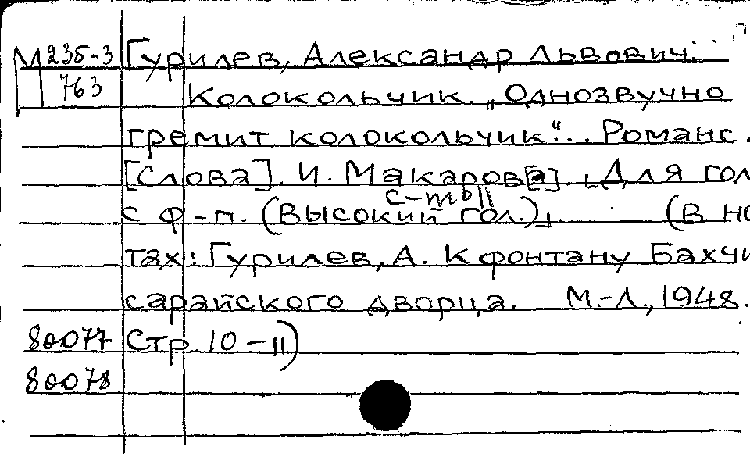 М 235-3 Гурилев, Александр Львович.
763 Колокольчик. „Однозвучно
гремит колокольчик“.. Романс.
[Слова]. И. Макаров[а]. Для гол
с-тЬ
с ф-п. (Высокий гол.), (В но
тах: Гурилев, А. К фонтану Бахчи
сарайского дворца. М.-Л., 1948.
80077 Стр. 10-11)
80078